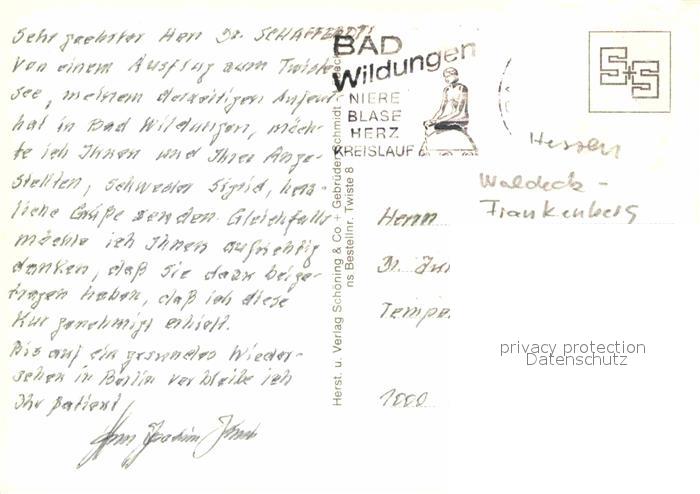 Sehr geehrter Herr Dr. SCHAFFERDT!
Von einem Ausflug zum Twiste-
see, meinem derzeitigen Aufent-
halt in Bad Wildungen, möch-
te ich Ihnen und Ihrer Ange-
stellten, Schwester Sigrid, herz-
liche Grüße senden. Gleichfalls
möchte ich Ihnen aufrichtig
danken, daß Sie dazu beige-
tragen haben, daß ich diese
Kur genehmigt erhielt.
Bis auf ein gesundes Wieder-
sehen in Berlin verbleibe ich
Ihr Patient
Joachim
BAD
Wildungen
NIERE
BLASE
HERZ
KREISLAUF
Herst. u. Verlag Schöning & Co. + Gebrüder Schmidt
ns Bestellnr. Twiste 8
S+S
Hessen
Waldeck-
Frankenberg
Herrn
Dr.
Tempe
1000
privacy protection
Datenschutz